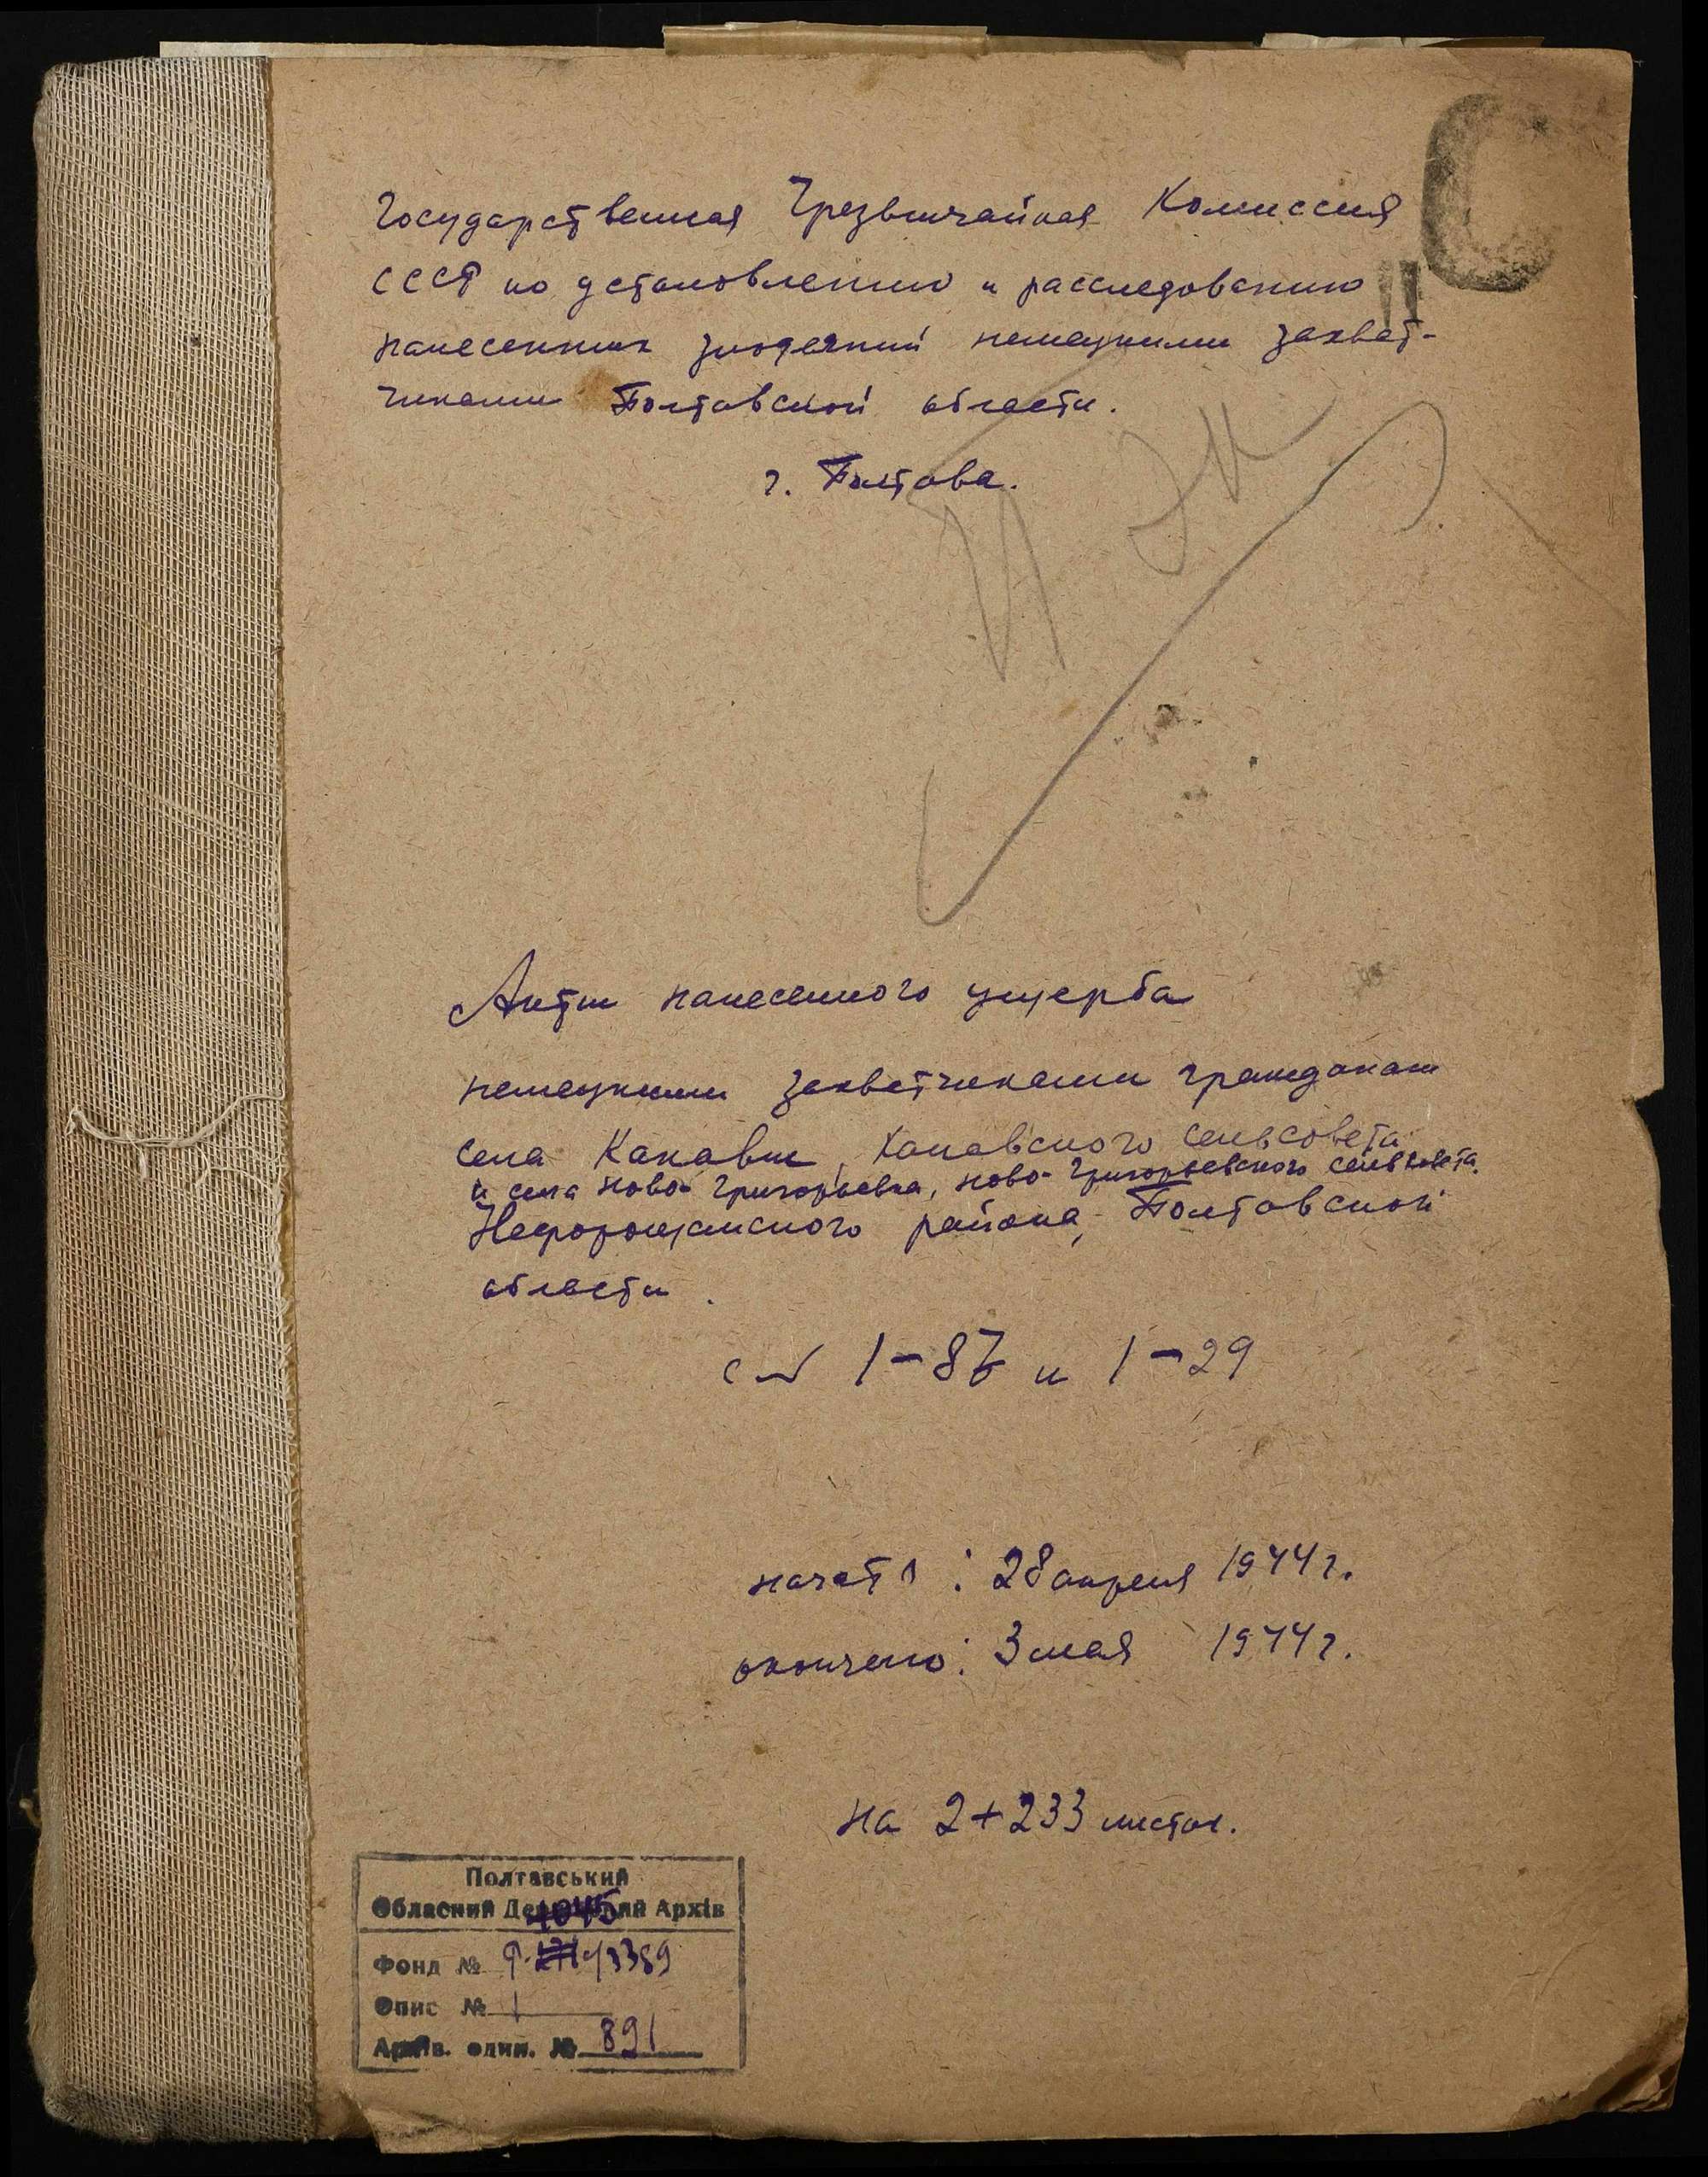 Государственная Чрезвычайная Комиссия
СССР по установлению и расследованию
нанесенных злодеяний немецкими захват-
чиками Полтавской области.
г. Полтава.
Акты нанесенного ущерба
немецкими захватчиками гражданам
села Канавы, Канавского сельсовета
и села Ново-Григорьевка, Ново-Григорьевского сельсовета.
Нефорощанского района, Полтавской
области.
с № 1-87 и 1-29
начато: 28 апреля 1944 г.
окончено: 3 мая 1944 г.
на 2+233 листах.
Полтавський
Обласний Державний Архів
4045
Фонд № Р. 3389
Опис № 1
Архів. один. № 891